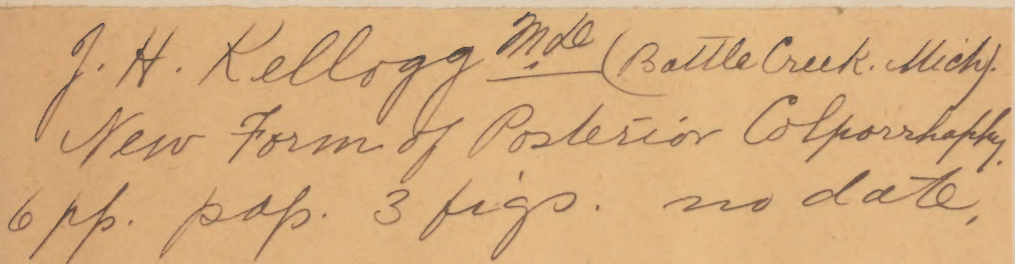 J. H. Kellogg M.D. (Battle Creek. Mich).
New Form of Posterior Colporrhaphy.
6 pp. pap. 3 figs. no date.